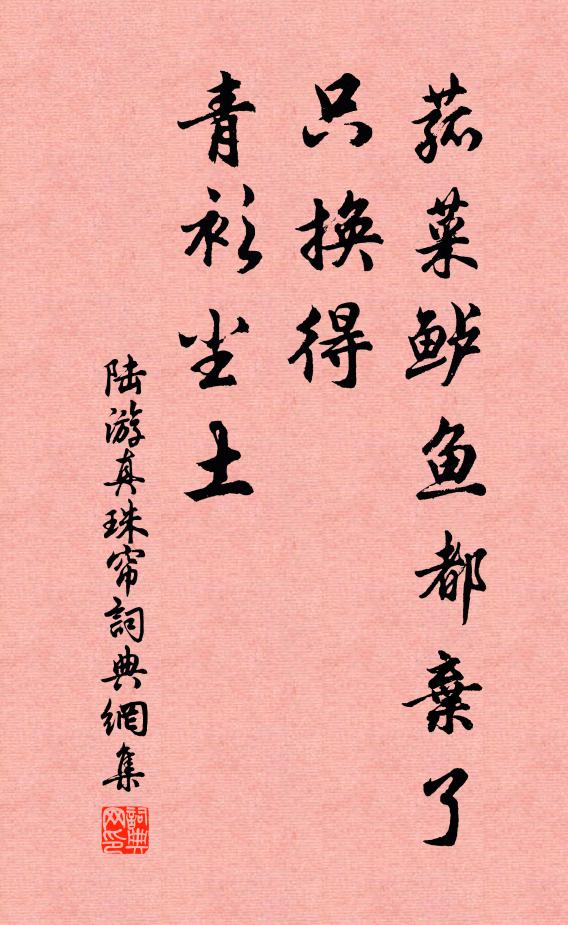 菰菜鲈鱼都棄了
只换得
青衫尘土
陆游真珠帘詞典網集
詞典网印